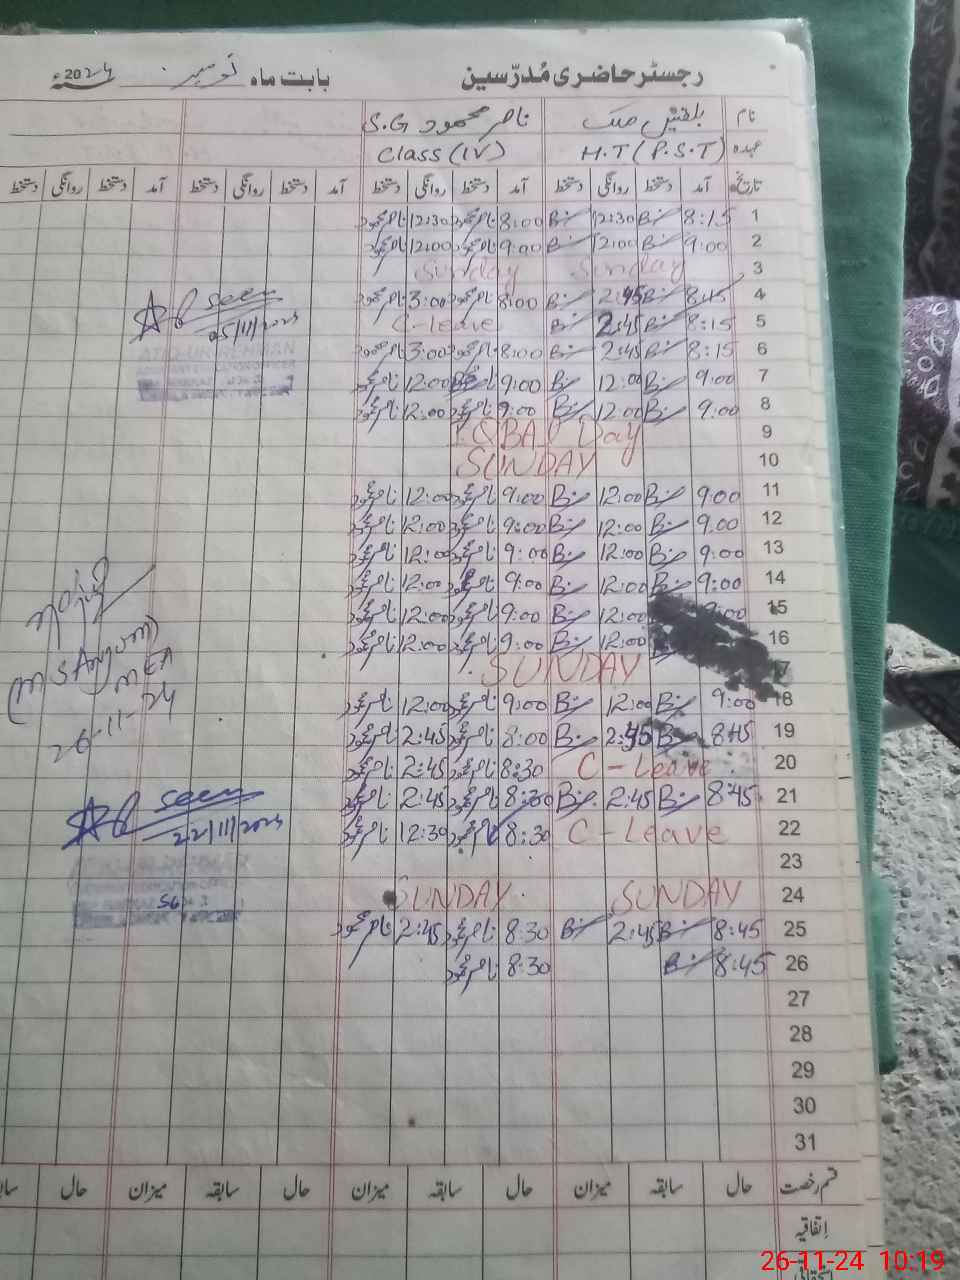 رجسٹر حاضری مُدرّسین بابت ماہ نومبر 2024ء
نام بلقیس ملک ناصر محمود S.G
عہدہ H.T (P.S.T) Class (IV)
تاریخ آمد دستخط روانگی دستخط آمد دستخط روانگی دستخط آمد دستخط روانگی دستخط آمد دستخط روانگی دستخط
1 8:15 B 12:30 B 8:00 ناصر محمود 12:30 ناصر محمود
2 9:00 B 12:00 B 9:00 ناصر محمود 12:00 ناصر محمود
3 Sunday Sunday
4 8:45 B 2:45 B 8:00 ناصر محمود 3:00 ناصر محمود
5 8:15 B 2:45 B C-leave
6 8:15 B 2:45 B 8:00 ناصر محمود 3:00 ناصر محمود
7 9:00 B 12:00 B 9:00 12:00 ناصر محمود
8 9:00 B 12:00 B 9:00 ناصر محمود 12:00 ناصر محمود
9 IQBAL Day
10 SUNDAY
11 9:00 B 12:00 B 9:00 ناصر محمود 12:00 ناصر محمود
12 9:00 B 12:00 B 9:00 ناصر محمود 12:00 ناصر محمود
13 9:00 B 12:00 B 9:00 ناصر محمود 12:00 ناصر محمود
14 9:00 B 12:00 B 9:00 ناصر محمود 12:00 ناصر محمود
15 9:00 12:00 B 9:00 ناصر محمود 12:00 ناصر محمود
16 12:00 B 9:00 ناصر محمود 12:00 ناصر محمود
17 SUNDAY
18 9:00 B 12:00 B 9:00 ناصر محمود 12:00 ناصر محمود
19 8:45 B 2:45 B 8:00 ناصر محمود 2:45 ناصر محمود
20 C-Leave 8:30 ناصر محمود 2:45 ناصر محمود
21 8:45 B 2:45 B 8:30 ناصر محمود 2:45 ناصر محمود
22 C-Leave 8:30 ناصر محمود 12:30 ناصر محمود
23
24 SUNDAY SUNDAY
25 8:45 B 2:45 B 8:30 ناصر محمود 2:45 ناصر محمود
26 8:45 B 8:30 ناصر محمود
27
28
29
30
31
قسم رخصت حال سابقہ میزان حال سابقہ میزان حال سابقہ میزان حال
اِتفاقیہ
seen
05/11/2024
MEA
26-11-24
seen
22/11/2024
26-11-24 10:19